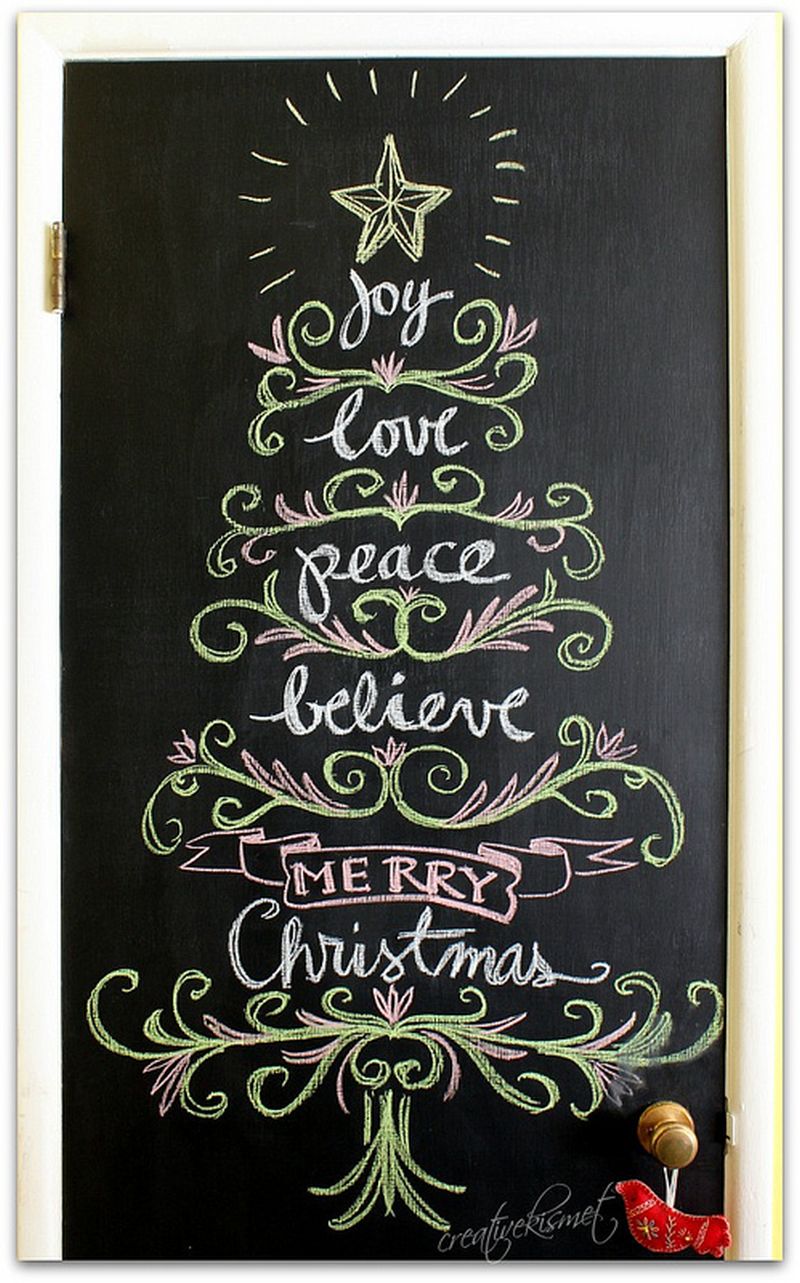 joy
love
peace
believe
MERRY
Christmas
creativekismet